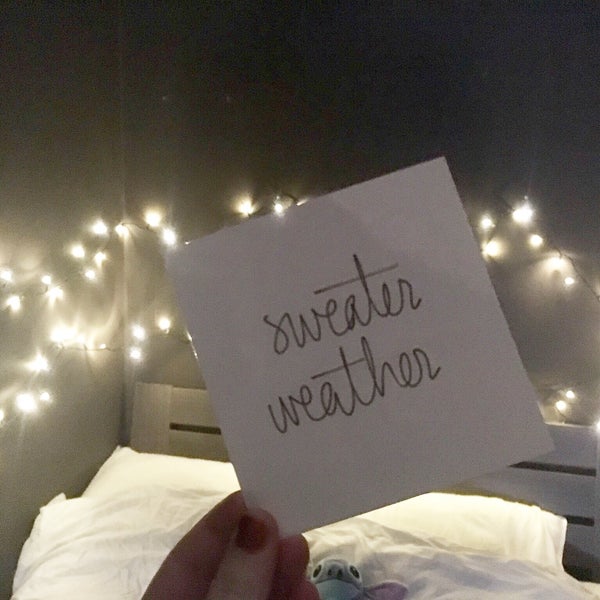 sweater
weather